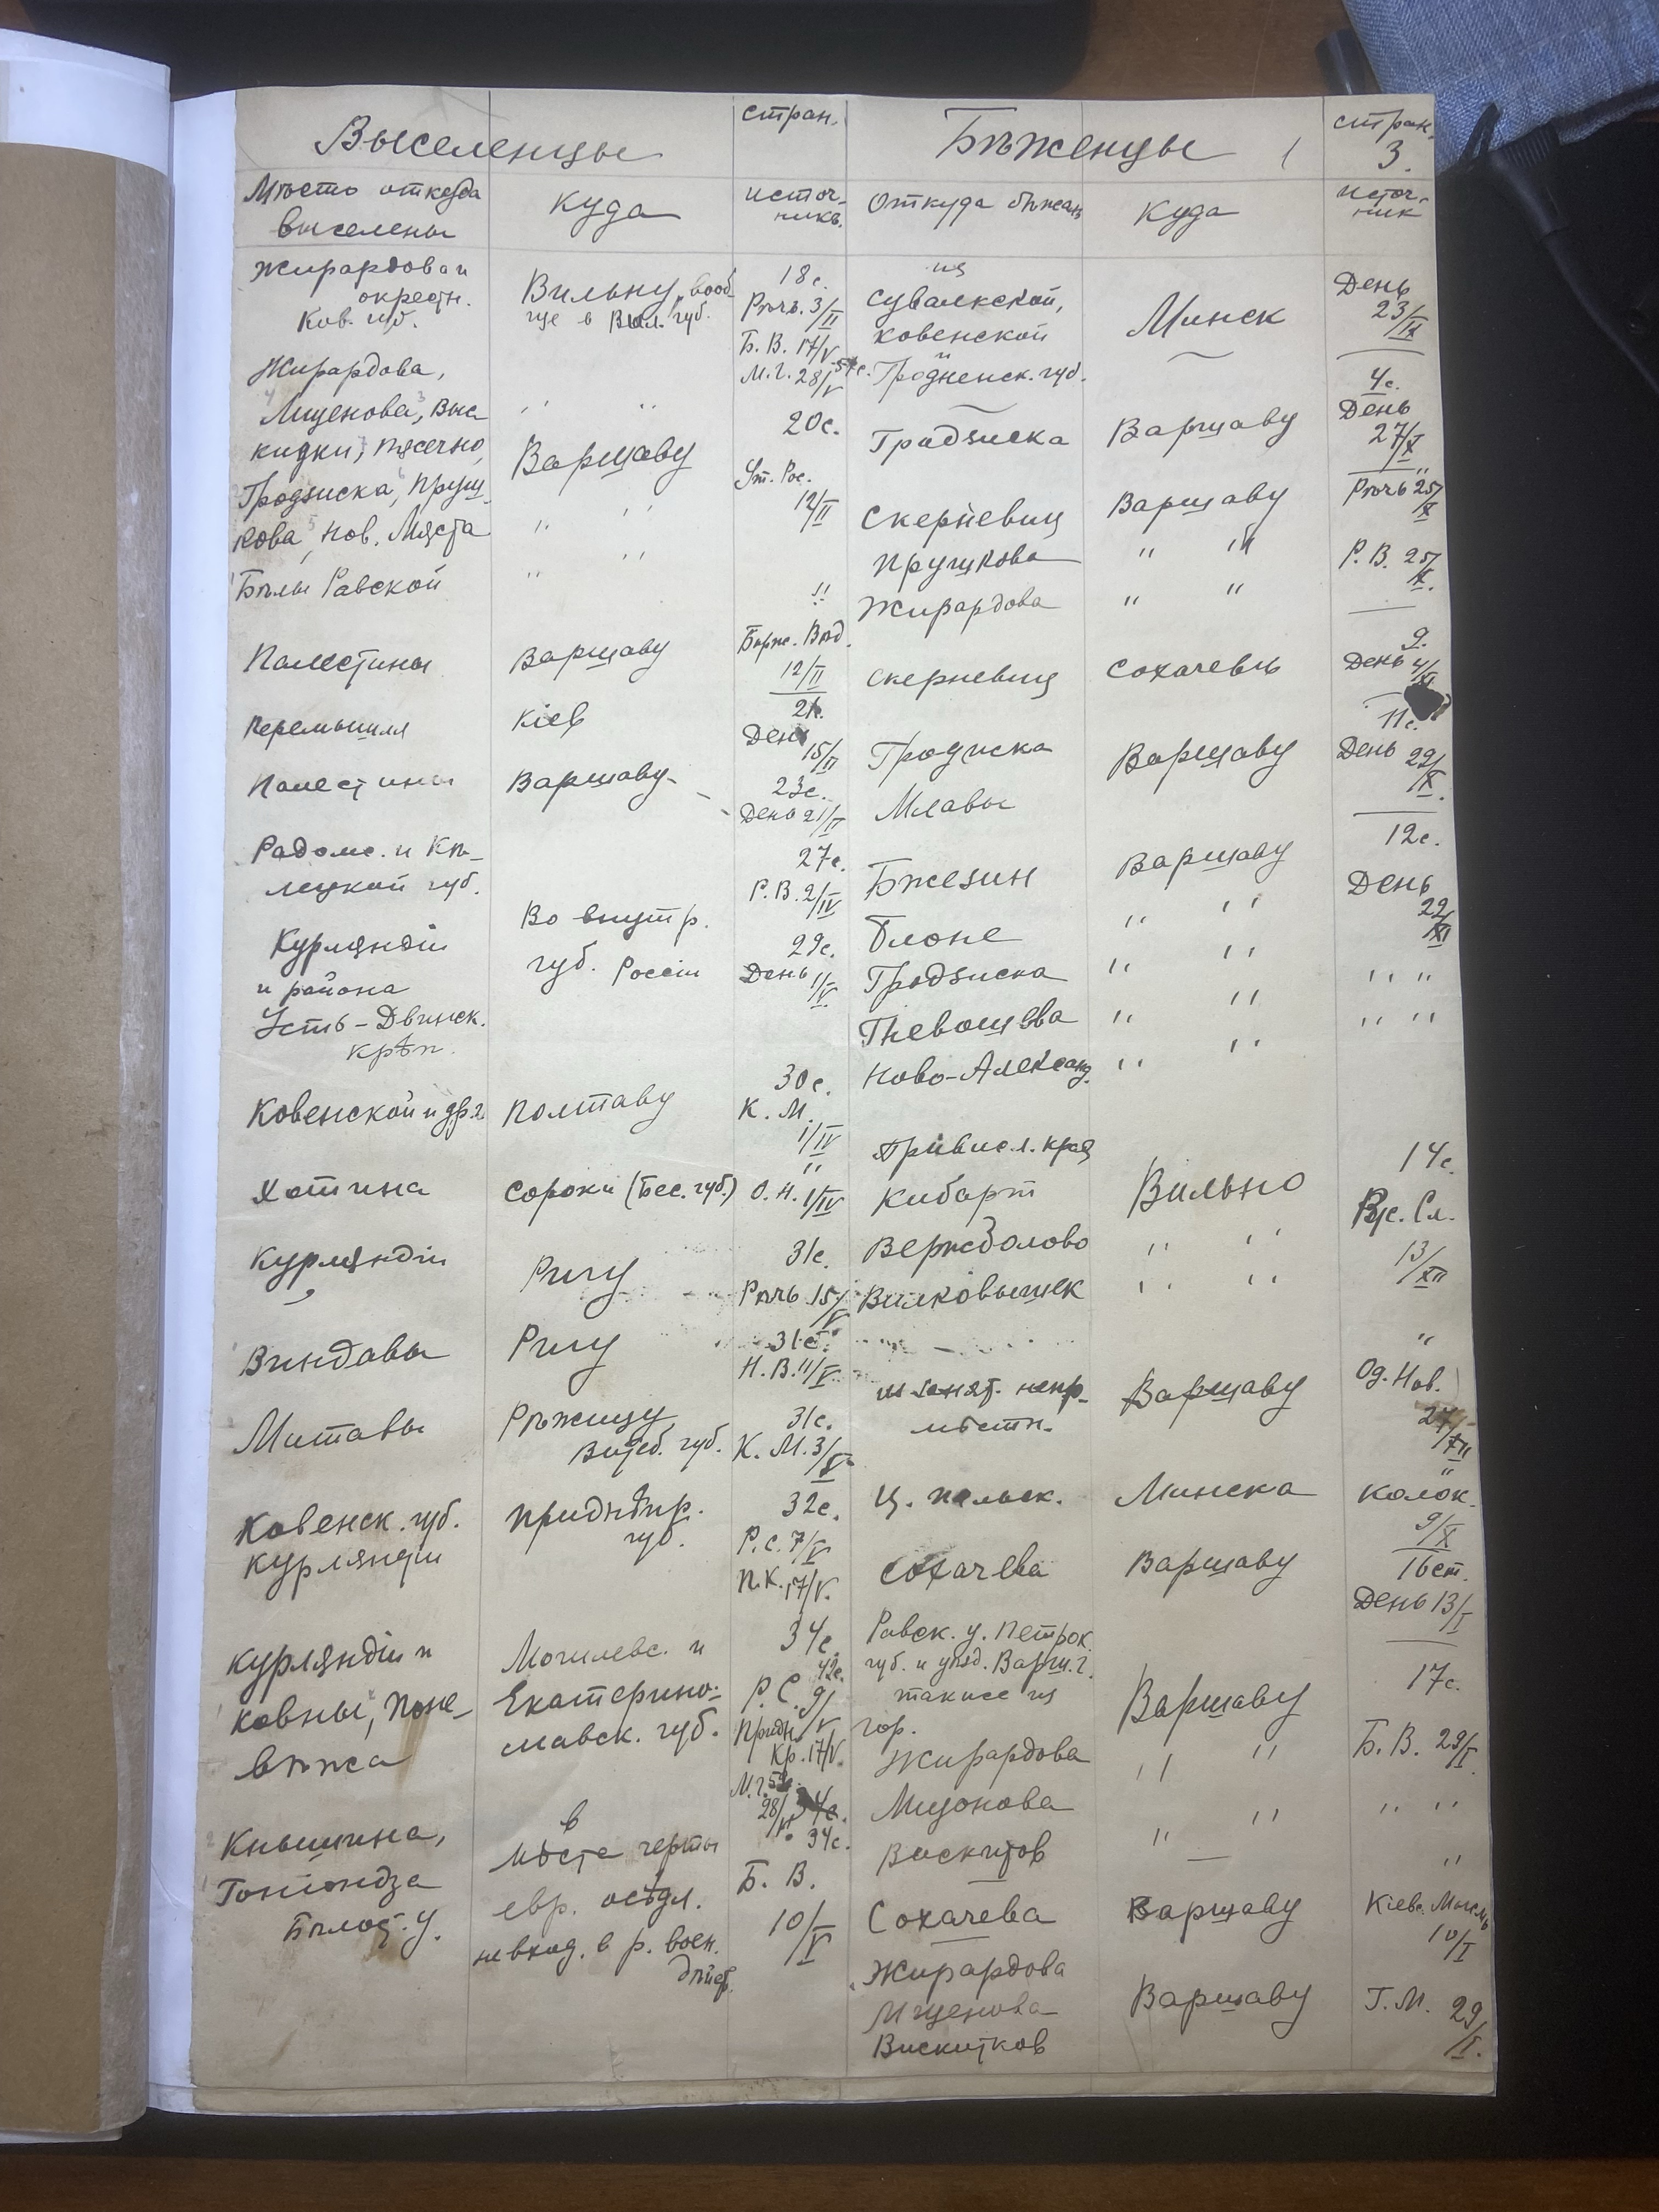 Выселенцы
стран.
Бѣженцы
стран.
3.
Мѣсто откуда
выселены
куда
источ-
никъ.
Откуда бѣжали
куда
источ-
ник
Жирардова и
окрестн.
Ков. губ.
Вильну, вооб-
ще в Вил. губ.
18с.
Рѣчь. 3/II
Б. В. 17/V
М. Г. 28/V 54с.
из
Сувалкской,
Ковенской
и
Гродненск. губ.
Минск
День
23/IX
4с.
Жирардова,
Мщенова, Вис-
китки, Пясечно,
Гродзиска, Пруш-
кова, Нов. Мяста
" "
Варшаву
" "
20с.
Ут. Рос.
12/II
Гродзиска
Варшаву
День
27/X
Скерневиц
Варшаву
Рѣчь 25/X
Прушкова
" "
Р. В. 25/X.
Бѣлы Равской
" "
"
Жирардова
" "
9.
Палестины
Варшаву
Бирж. Вѣд.
12/II
Скерневиц
Сохачевъ
День 4/XI
11с.
Перемышля
Кіев
21с.
День
15/II
Гродиска
Варшаву
День 22/X.
Палестины
Варшаву
23с.
День 21/II
Млавы
12с.
Радомс. и Кѣ-
лецкой губ.
27с.
Р. В. 2/IV
Бжезин
Варшаву
День
22/XI
Курляндіи
и района
Усть-Двинск.
крѣп.
Во внутр.
губ. Россіи
29с.
День 1/V
Блоне
" "
Гродзиска
" "
" "
Гневошева
" "
" "
Ново-Александ.
" "
Ковенской и др. г.
Полтаву
30с.
К. М.
1/IV
Привисл. края
14с.
Хотина
Сороки (Бес. губ.)
"
О. Н. 1/IV
Кибарт
Вильно
Вс. Сл.
13/XII
Курляндіи
Ригу
31с.
Рѣчь 15/V
Вержболово
" "
Вилковышек
" "
Виндавы
Ригу
31с.
Н. В. 11/V
из занят. непр.
мѣстн.
Варшаву
"
Од. Нов.
24/XII
Митавы
Рѣжицу,
Витеб. губ.
31с.
К. М. 3/V
Ц. Польск.
Минска
"
Колок.
9/X
Ковенск. губ.
Курляндіи
Приднѣпр.
губ.
32с.
Р. С. 7/V
П. К. 17/V.
Сохачева
Варшаву
16ст.
День 13/I
Курляндіи и
Ковны, Поне-
вѣжа
Могилевс. и
Екатерино-
славск. губ.
34с.
42с.
Р. С. 9/V
Придн.
Кр. 17/V.
Равск. у. Петрок.
губ. и уѣзд. Варш. г.
также из
гор.
Варшаву
17с.
Жирардова
" "
Б. В. 29/I
Мщонова
" "
" "
Вискитов
"
Кнышина,
Гоніондза
Бѣлост. у.
в
мѣста черты
евр. осѣдл.
не вход. в р. воен.
дѣйст.
М. Г. 54с.
28/VI
34с.
Б. В.
10/V
Сохачева
Варшаву
Кіевс. Мысль
10/I
Жирардова
Мщенова
Вискитков
Варшаву
Г. М. 29/I.